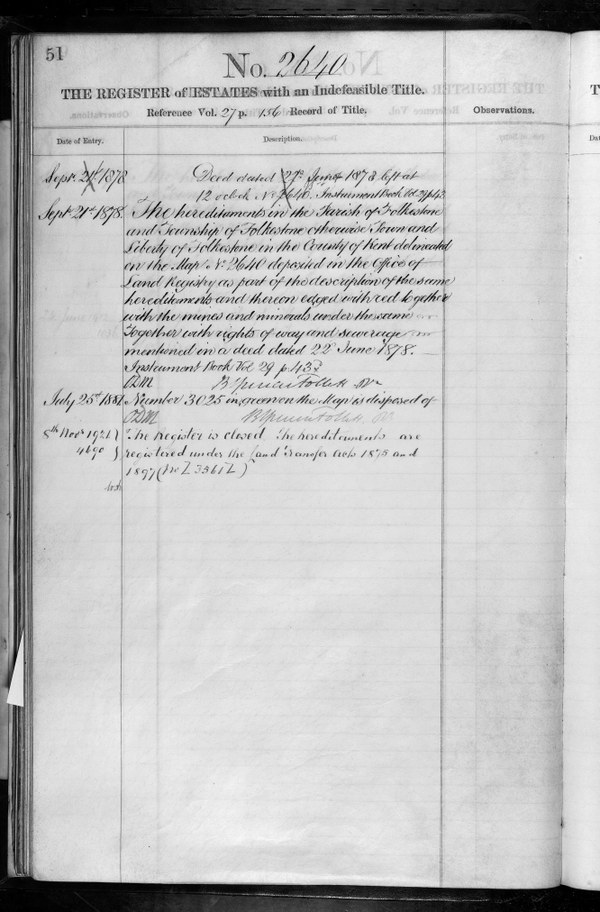 51
No. 2640
THE REGISTER of ESTATES with an Indefeasible Title.
Reference Vol. 27 p. 156 Record of Title.
Observations.
Date of Entry.
Description.
Sept. 21st 1878 Deed dated 1878 left at
12 oclock No 2640. Instrument Book Vol. 29 p 43
Sept. 21st 1878. The hereditaments in the Parish of Folkestone
and Township of Folkestone otherwise Town and
Liberty of Folkestone in the County of Kent delineated
on the Map No 2640 deposited in the Office of
Land Registry as part of the description of the same
hereditaments and thereon edged with red together
with the mines and minerals under the same
Together with rights of way and sewerage
mentioned in a deed dated 22nd June 1878.
Instrument Book Vol 29 p. 43
July 25th 1881 Number 3025 in green on the Map is disposed of
8th Novr 1921 The Register is closed The hereditaments are
4690 registered under the Land Transfer Acts 1875 and
1897